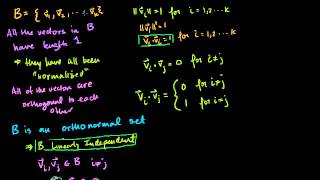 B = { v⃗₁, v⃗₂, ... v⃗ₖ}
All the vectors in B
have length 1
⇒ they have all been
"normalized"
All of the vectors are
orthogonal to each
other
B is an orthonormal set
⇒ B Linearly Independent
v⃗ᵢ, v⃗ⱼ ∈ B i≠j
||v⃗ᵢ|| = 1 for i = 1,2...k
||v⃗ᵢ||² = 1
v⃗ᵢ·v⃗ᵢ = 1 for i = 1,2...k
v⃗ᵢ · v⃗ⱼ = 0 for i≠j
v⃗ᵢ · v⃗ⱼ = { 0 for i≠j
1 for i=j